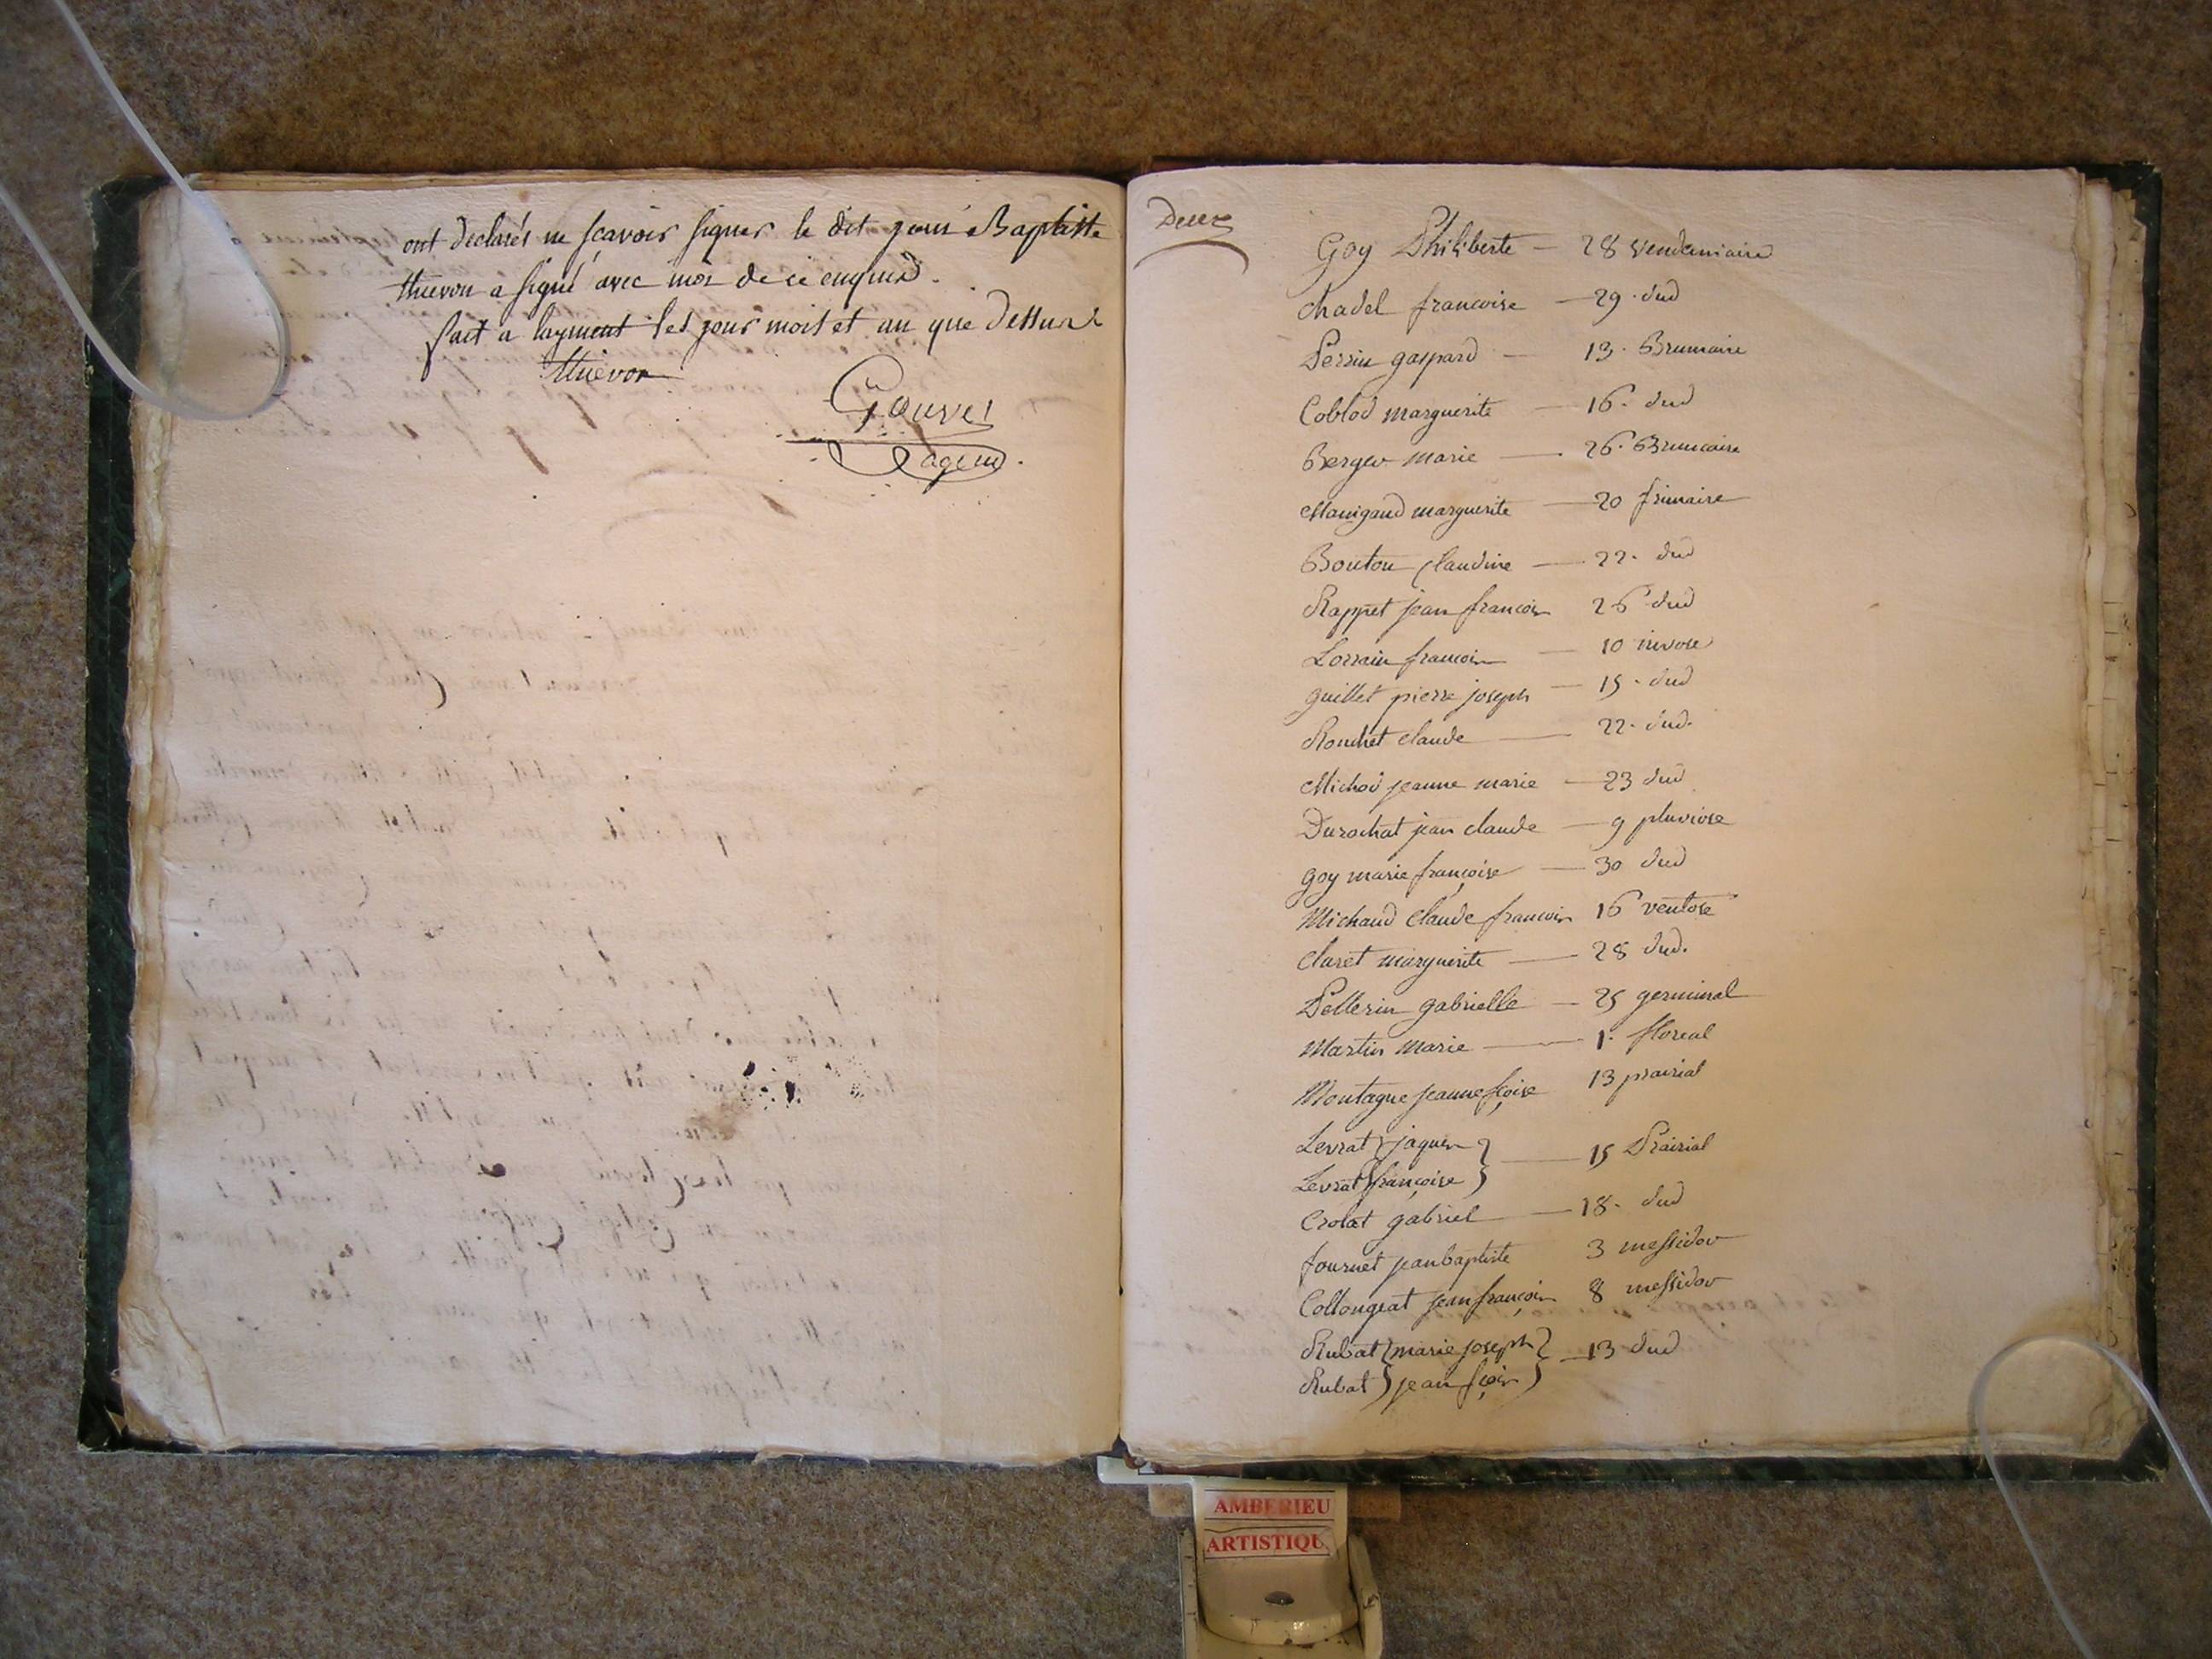 ont declarés ne sçavoir signer le dit jean Baptiste
thievon a signé avec moi de ce enquis.
fait a layment les jour mois et an que dessus
thievon
Gouvet
agent.
Deux
Goy Philiberte — 28 vendemiaire
chadel francoise — 29 dud
Perrin gaspard — 13 Brumaire
Coblod marguerite — 16 dud
Berger marie — 26 Brumaire
Manigand marguerite — 20 frimaire
Bouton Claudine — 22 dud
Rappet jean francois 26 dud
Lorrain francois — 10 nivose
guillet pierre joseph — 15 dud
Rouchet claude — 22 dud.
Michod jeanne marie — 23 dud
Durochat jean claude — 9 pluviose
goy marie françoise — 30 dud
Michaud Claude francois 16 ventose
claret marguerite — 28 dud.
Pellerin gabrielle — 25 germinal
Martin Marie — 1. floreal
Montagne jeanne fçoise 13 prairial
Levrat jaques
Levrat françoise } — 15 Prairial
Crolat gabriel — 18. dud
fournet jean baptiste 3 messidor
Collongeat jean françois 8 messidor
Rubat marie joseph — 13 dud
Rubat jean fçois
AMBERIEU
ARTISTIQU